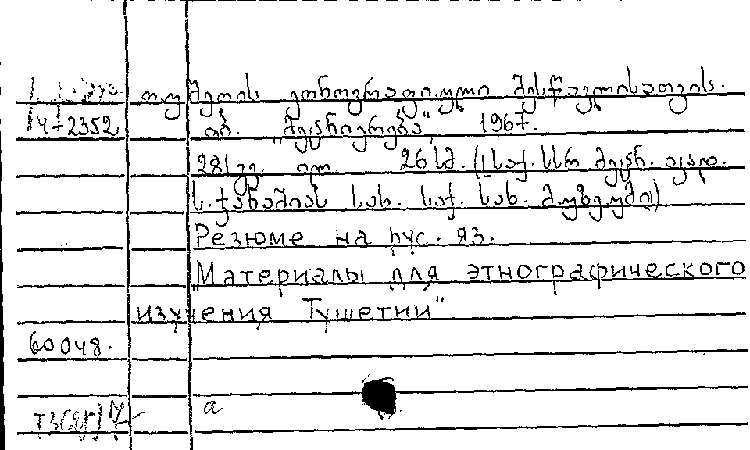 თუშეთის ეთნოგრაფიული შესწავლისათვის.
14-2352 თბ. „მეცნიერება“, 1967.
281 გვ. 26 სმ. (საქ. სსრ მეცნ. აკად.
ს. ჯანაშიას სახ. საქ. სახ. მუზეუმი)
Резюме на рус. яз.
Материалы для этнографического
изучения Тушетии"
60048.
а